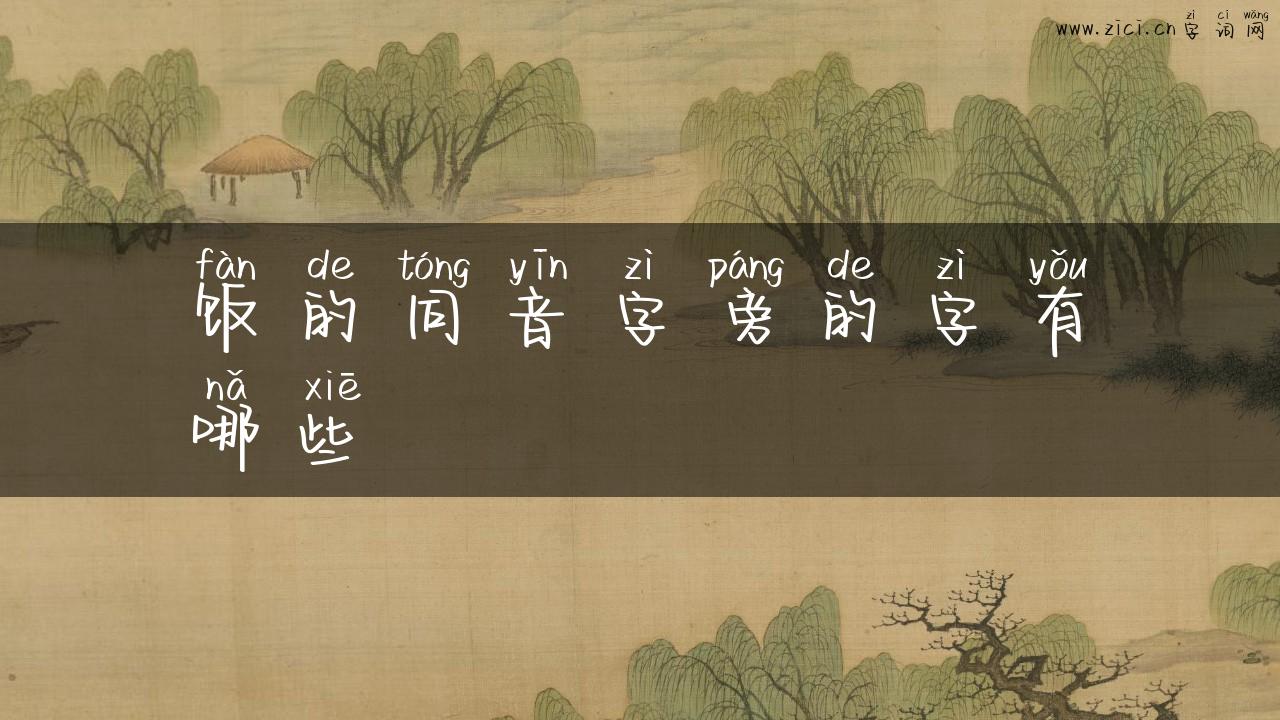 zì cí wǎng
www.zici.cn 字词网
fàn de tóng yīn zì páng de zì yǒu
饭的同音字旁的字有
nǎ xiē
哪些